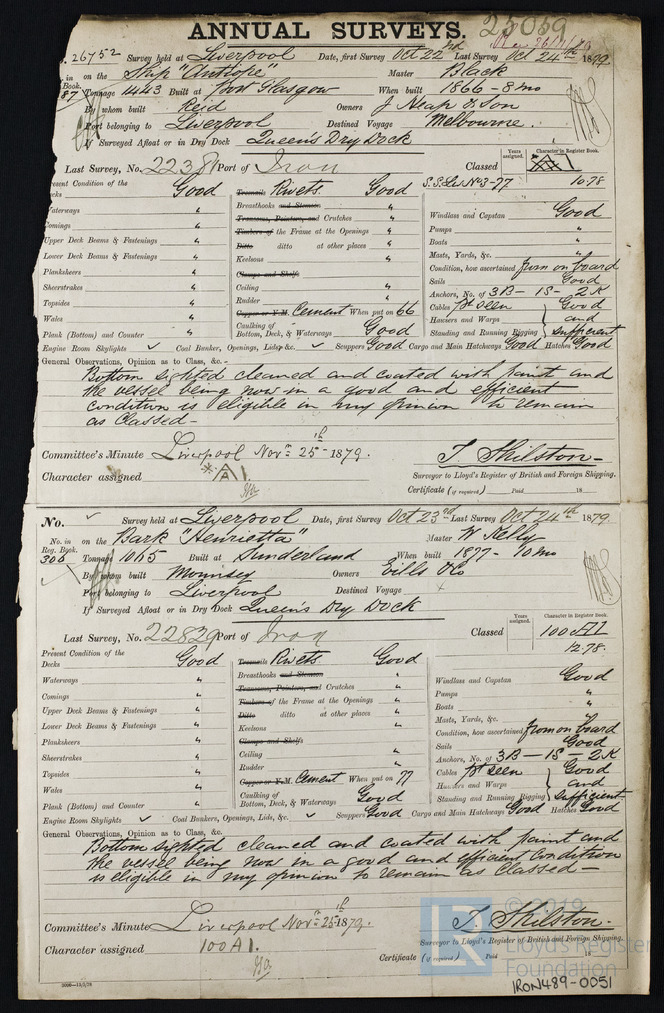 ANNUAL SURVEYS. 25059
26752 Survey held at Liverpool Date, first Survey Oct 22nd Last Survey Oct 24th 1879
in on the Ship "Antiope" Master Black
Book. 87 Tonnage 1443 Built at Port Glasgow When built 1866 - 8 mo
By whom built Reid Owners J Heap & Son
Port belonging to Liverpool Destined Voyage Melbourne.
If Surveyed Afloat or in Dry Dock Queen's Dry Dock
Years assigned. Character in Register Book.
Last Survey, No. 2238 Port of Iron Classed A1
S.S. Liv No 3-77 10.78
Present Condition of the
Decks Good Treenails Rivets. Good
Waterways " Breasthooks and Stemson "
Windlass and Capstan Good
Comings " Transoms, Pointers, and Crutches "
Pumps "
Upper Deck Beams & Fastenings " Timbers of the Frame at the Openings "
Boats "
Lower Deck Beams & Fastenings " Ditto ditto at other places "
Masts, Yards, &c. "
Planksheers " Keelsons "
Condition, how ascertained from on board
Sheerstrakes " Clamps and Shelfs
Sails Good
Topsides " Ceiling "
Anchors, No. of 3B - 1S - 2K
Wales " Rudder "
Cables pt seen Good
Copper or Y.M. Cement When put on 66
Hawsers and Warps and
Plank (Bottom) and Counter " Caulking of Bottom, Deck, & Waterways Good
Standing and Running Rigging sufficient
Engine Room Skylights ✓ Coal Bunker, Openings, Lids, &c. ✓ Scuppers Good Cargo and Main Hatchways Good Hatches Good
General Observations, Opinion as to Class, &c.-
Bottom sighted cleaned and coated with paint and
the vessel being now in a good and efficient
condition is eligible in my opinion to remain
as Classed -
Committee's Minute Liverpool Novr 25th 1879.
T. Skilston -
Character assigned A1.
Surveyor to Lloyd's Register of British and Foreign Shipping.
Certificate (if required) Paid 18
No. ✓ Survey held at Liverpool Date, first Survey Oct 23rd Last Survey Oct 24th 1879.
No. in Reg. Book. on the Bark "Henrietta" Master W Kelly
306 Tonnage 1065 Built at Sunderland When built 1877 - 10 mo
By whom built Mounsey Owners Eills & Co
Port belonging to Liverpool Destined Voyage
If Surveyed Afloat or in Dry Dock Queen's Dry Dock
Years assigned. Character in Register Book.
Last Survey, No. 22829 Port of Iron Classed 100 A1
12.78.
Present Condition of the
Decks Good Treenails Rivets. Good
Waterways " Breasthooks and Stemson "
Windlass and Capstan Good
Comings " Transoms, Pointers, and Crutches "
Pumps "
Upper Deck Beams & Fastenings " Timbers of the Frame at the Openings "
Boats "
Lower Deck Beams & Fastenings " Ditto ditto at other places "
Masts, Yards, &c. "
Planksheers " Keelsons "
Condition, how ascertained from on board
Sheerstrakes " Clamps and Shelfs
Sails Good
Topsides " Ceiling "
Anchors, No. of 3B - 1S - 2K
Wales " Rudder "
Cables pt seen Good
Copper or Y.M. Cement When put on 77
Hawsers and Warps and
Plank (Bottom) and Counter " Caulking of Bottom, Deck, & Waterways Good
Standing and Running Rigging Sufficient
Engine Room Skylights ✓ Coal Bunkers, Openings, Lids, &c. ✓ Scuppers Good Cargo and Main Hatchways Good Hatches Good
General Observations, Opinion as to Class, &c.
Bottom sighted cleaned and coated with paint and
the vessel being now in a good and efficient Condition
is eligible in my opinion to remain as Classed -
Committee's Minute Liverpool Novr 25th 1879.
T. Skilston.
Character assigned 100 A1.
Surveyor to Lloyd's Register of British and Foreign Shipping.
Certificate (if required) Paid 18
© 2019
Lloyd's Register
Foundation
IRON489-0051